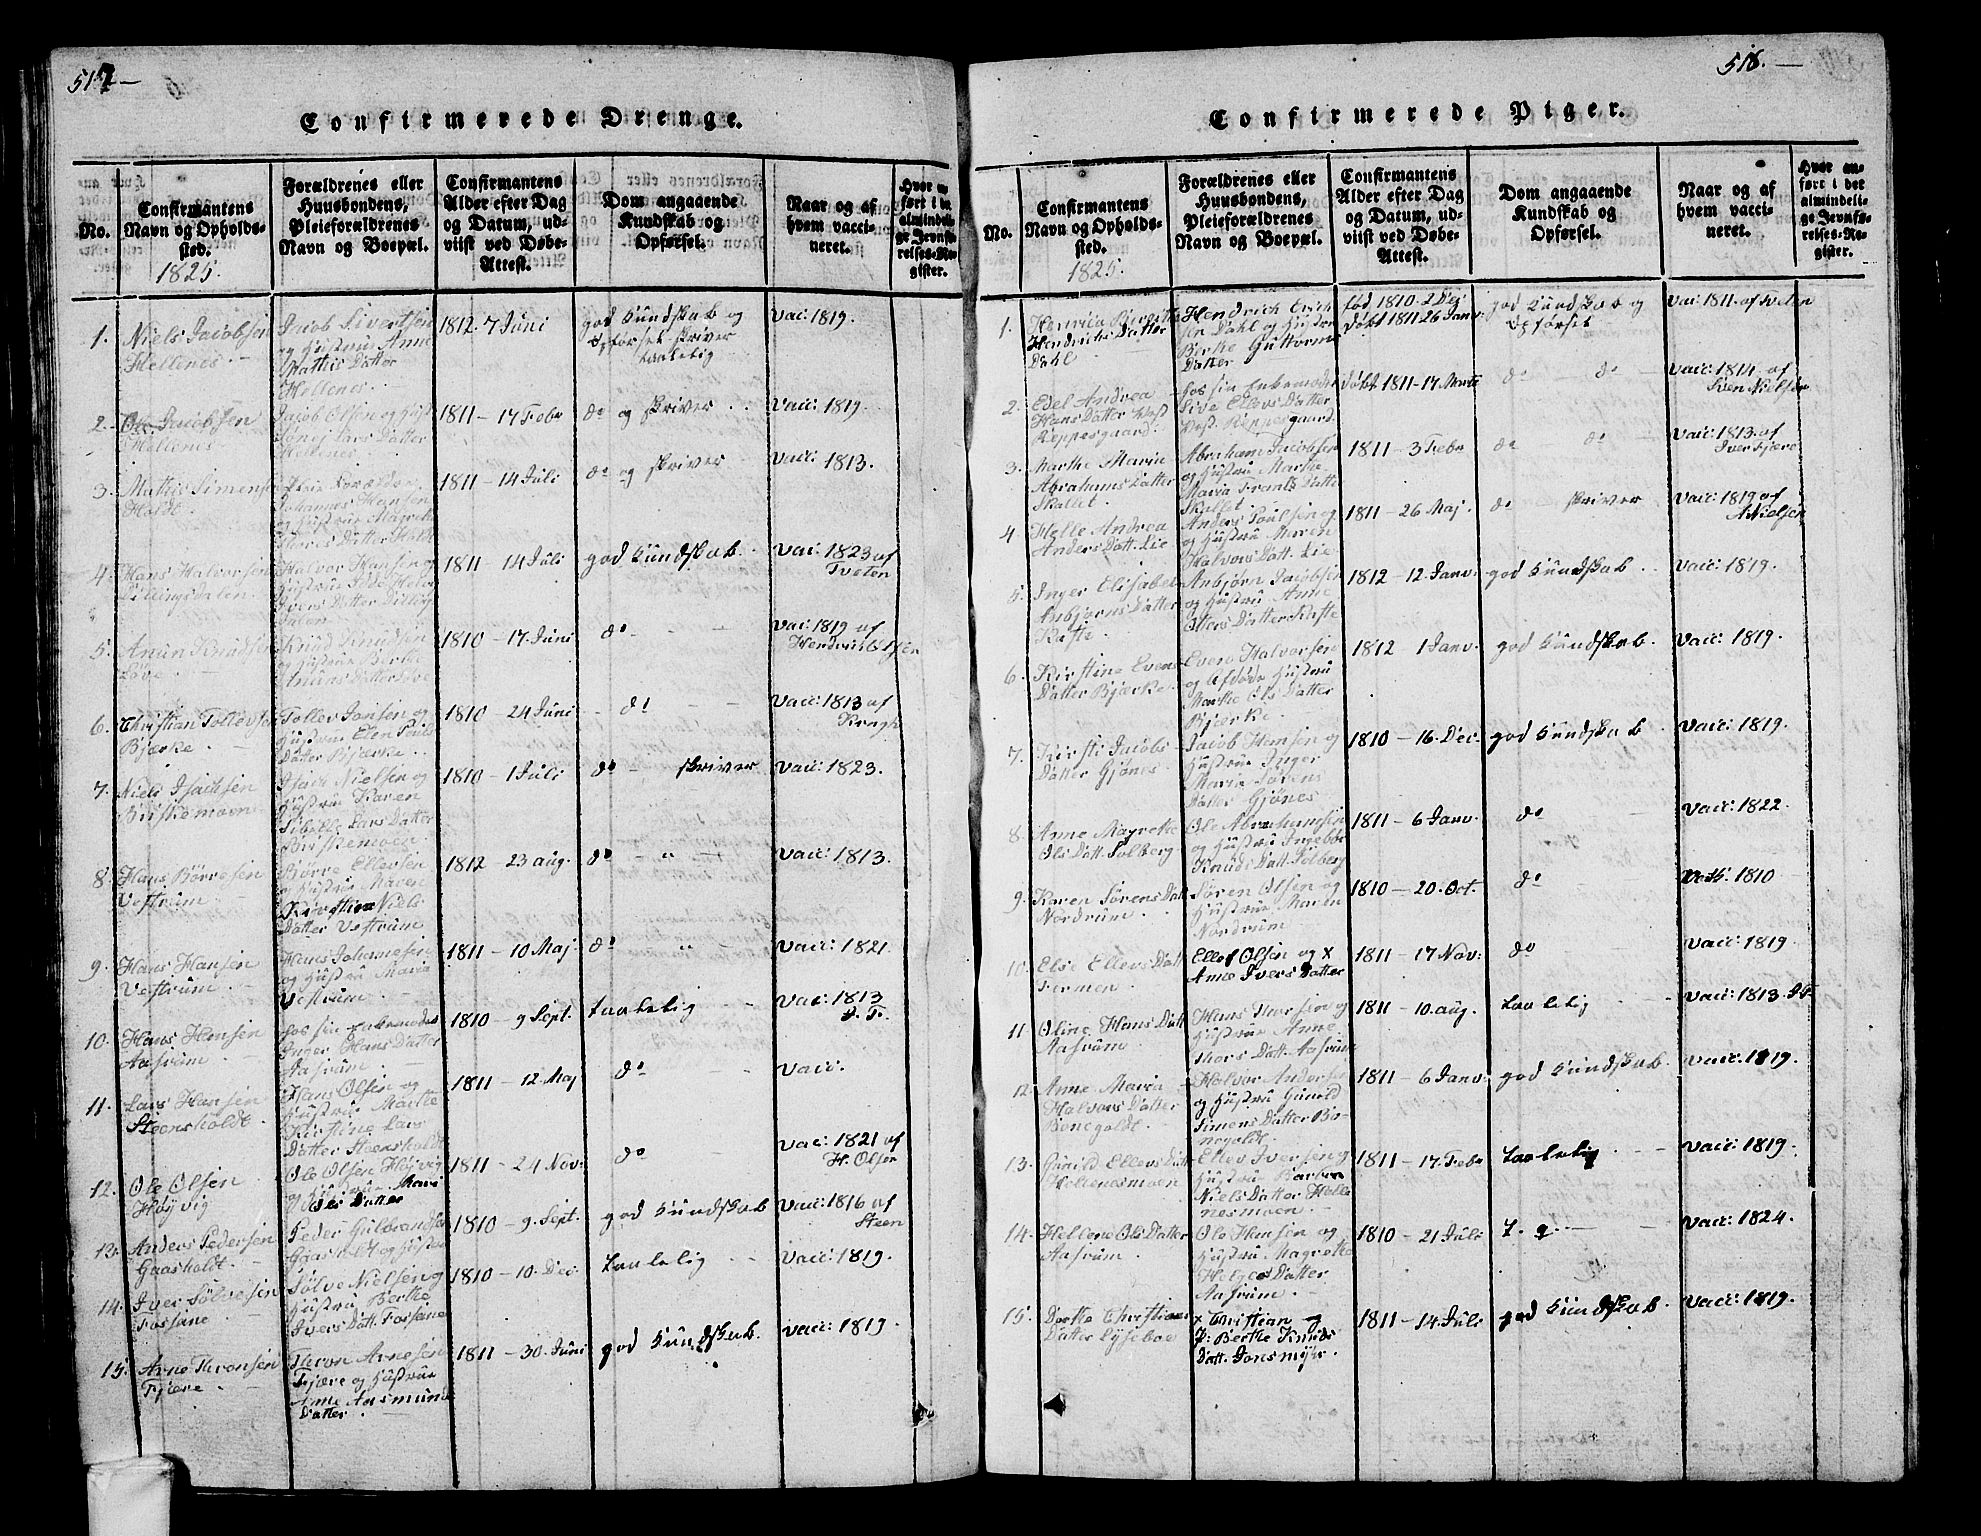 517 —
Confirmerede Drenge.
No.
Confirmantens
Navn og Opholds-
sted.
1825.
Forældrenes eller
Huusbondens,
Pleieforældrenes
Navn og Boepæl.
Confirmantens
Alder efter Dag
og Datum, ud-
viist ved Døbe-
Attest.
Dom angaaende
Kundskab og
Opførsel.
Naar og af
hvem vacci-
neret.
Hvor an-
ført i det
almindeli-
ge Jevnfø-
relses-Re-
gister.
1. Niels Jacobsen
Hellenes. —
Jacob Sivertsen
og Hustru Anne
Mathis Datter
Hellenes. —
1812. 7 Juni
god Kundskab og
Opførsel skriver
taalelig
Vac: 1819.
2. Ole Jacobsen
Hellenes
Jacob Olsen og Hust
Lars Datter
Hellenes.
1811 — 17 Febr
do og skriver . .
Vacc: 1819.
3. Mathis Simensen
Holdt.
Johannes Hansen
og Hustrue Magrete
Thores Datter Holdt
1811 — 14 Juli
do og skriver
Vacc: 1813.
4. Hans Halvorsen
Dillingsdalen.
Halvor Hansen og
Hustrue
Ivers Datter Dilling
dalen
1811 14 Juli
god Kundskab. —
Vac: 1823 af
Tveten
5. Knudsen
Løve. —
Knud Knudsen
og Hustrue Berthe
Datter Løve
1810 — 17. Juni
do — —
Vac: 1819 af
6. Christian Tollevsen
Bjærke. —
Tollev Jansen og
Hustrue Elen Pouls
Datter Bjærke. .
1810 — 24 Juni
— do —
Vacc: 1813 af
Krogh
7. Niels Isachsen
Briskemoen
Isach Nielsen og
Hustrue Karen
Sibelle Lars Datter
Briskemoen
1810 — 1 Juli
do — skriver
Vacc: 1823.
8. Hans Børresen
Vestrum. —
Børre Ellevsen
og Hustrue Maren
Kirstine Niels
Datter Vestrum
1812 — 23 aug.
do — " —
Vacc: 1813.
9. Hans Hansen
Vestrum. —
Hans Johannesen
og Hustrue Maria
Vestrum. —
1811 — 10 Maj.
do " —
Vacc: 1821.
10. Hans Hansen
Aasrum. —
hos sin Enkemoder
Inger Hans Datter
Aasrum. —
1810 — 9 Sept.
taalelig — —
Vac: 1813
I. F.
11. Lars Hansen
Steensholdt.
Hans Olsen og
Hustrue Marthe
Kirstine Lars
Datter Steensholdt
1811 — 12 Maj
do —
Vacc.
12. Ole Olsen
Høyvig
Ole Olsen Høyvig
og Hustrue Mari
Ols Datter
1811 — 24 Nov:
do —
Vac: 1821 af
H. Olsen
13. Anders Pedersen
Gaasholdt. —
Peder Gulbrandsen
Gaasholdt og Hustrue
1810 — 9. Sept.
god Kundskab
Vacc: 1816 af
Steen
14. Iver Sølvesen
Fossane. —
Sølve Nielsen og
Hustrue Berthe
Ivers Datt. Fossane
1810 — 10. Dec.
taalelig — —
Vacc: 1819.
15. Arne Thronsen
Fjære. —
Thron Arnesen
Fjære og Hustrue
Anne Aasmunds
Datter. —
1811 — 30. Juni
god Kundskab.
Vacc: 1819.
518. —
Confirmerede Piger.
No.
Confirmantens
Navn og Opholds-
sted.
1825.
Forældrenes eller
Huusbondens,
Pleieforældrenes
Navn og Boepæl.
Confirmantens
Alder efter Dag
og Datum, ud-
viist ved Døbe-
Attest.
Dom angaaende
Kundskab og
Opførsel.
Naar og af
hvem vacci-
neret.
Hvor an-
ført i det
almindeli-
ge Jevnfø-
relses-Re-
gister.
1. Henrica Birgitte
Hendrichs Datter
Dahl —
Hendrich Erich
sen Dahl og Hustru
Berthe Guttorms
Datter
fød 1810. 2 Dec:
døbt 1811 26 Janv:
god Kundskab og
Opførsel
Vac: 1811. af Tveten
2. Edel Andrea
Hans Datter Vest
Reppesgaard.
hos sin Enkemoder
Live Ellevs Datter
Vest. Reppesgaard.
døbt 1811 — 17 Marts
do — do —
Vacc: 1814. af
Sven Nielsen
3. Marthe Maria
Abrahams Datter
Skallet. —
Abraham Jacobsen
og Hustru Marthe
Maria Frants Datter
Skallet. —
1811 — 3 Febr
do — do —
Vacc: 1813. af
Iver Fjære
4 Helle Andrea
Anders Datt. Lie
Anders Poulsen og
Hustru Maren
Halvors Datt. Lie
1811 — 26 Maj.
do — skriver
Vacc: 1819 af
A Nielsen
5. Inger Elisabet
Anbjørns Datter
Rafte.
Anbjørn Jacobsen
og Hustru Anne
Datter Rafte
1812 — 12. Janv.
god Kundskab . .
Vacc: 1819.
6. Kirstine Evens
Datter Bjærke.
Even Halvorsen
og afdøde Hustru
Marthe Ols Datter
Bjerke. —
1812 — 1 Janv.
god Kundskab.
Vacc: 1819.
7. Kirsti Jacobs
Datter Gjønes. —
Jacob Hansen og
Hustrue Inger
Maria Sørens
Datter Gjønes
1810 — 16. Dec.
god Kundskab
Vacc: 1819.
8 Anne Magrethe
Ols Datt. Solberg
Ole Abrahamsen
og Hustru Ingebor
Knuds Datt. Solberg
1811 — 6 Janv.
do
Vacc: 1822.
9. Karen Sørens Datt
Nordrum —
Søren Olsen og
Hustrue Maren
Nordrum
1810 — 20. Oct.
do
1810
10. Else Ellevs Datt
Fermen —
Ellef Olsen og x
Anne Ivers Datter
1811 — 17 Nov:
do
Vacc: 1819.
11 Oline Hans Datt
Aasrum. —
Hans Thorsen og
Hustrue Anne
Thors Datt. Aasrum
1811 — 10. aug.
taalelig —
Vacc: 1813. IF
12. Anne Maria
Halvors Datter
Bonegoldt. —
Halvor Andersen
og Hustru Gunild
Simens Datter Bo-
negoldt. —
1811 — 6 Janv:
god Kundskab.
Vacc: 1819.
13. Gunild Ellevs Datt
Hellenesmoen —
Ellev Iversen og
Hustrue Barbara
Niels Datter Helle
nesmoen.
1811 — 17. Febr
taalelig . —
Vacc: 1819.
14. Hellene Ols Datter
Aasrum. —
Ole Hansen og
Hustru Magrethe
Helges Datter
Aasrum. —
1810 — 21 Juli
t. g. — —
Vacc: 1824.
15. Dorthe Christians
Datter Lyseboe
x Christian og
H: Berthe Knuds
Datt. Jonsmyhr.
1811 — 14. Juli
god Kundskab.
Vacc: 1819.